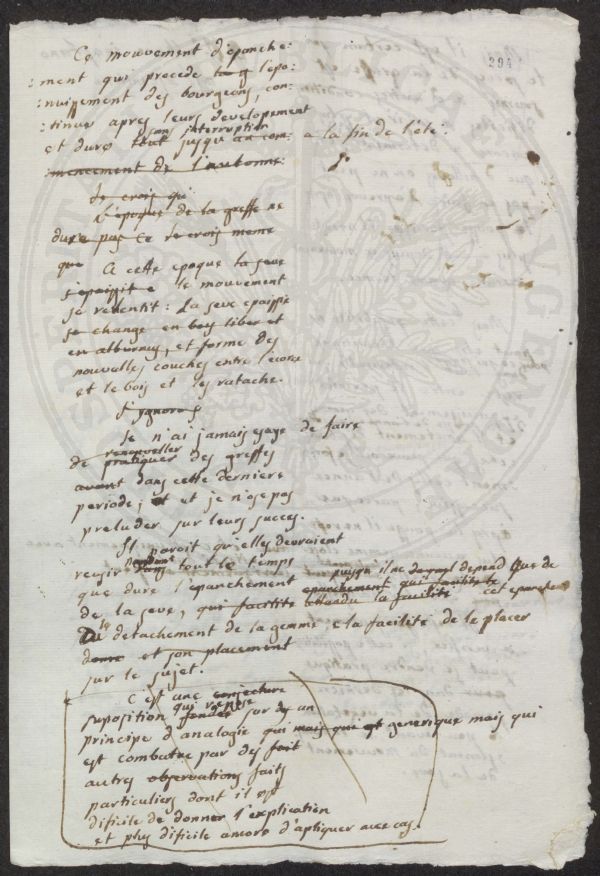 294
Ce mouvement d'epanche:
:ment qui precede l'epa:
:nuipement des bourgeons, con:
:tinue apres leurs developement
sans interruption
et dure tout jusqu'au com: a la fin de l'été.
:mencement de l'automne:
Je crois qu
L'époque de la greffe ne
dure pas Ce Je crois meme
que A cette epoque la seve
s'epaissit e le mouvement
se relentit: La seve epaissie
se change en bois liber et
en alburnus, et forme des
nouvelles couches entre l'ecorce
et le bois et les ratache.
J'ignore s
Je n'ai jamais esayé de faire
renouveller
de pratiquer des greffes
avant dans cette derniere
periode; et et je n'ose pas
preluder sur leurs succes.
Il paroit qu'elles devraient
pendant
reusir dans tout le temps
puisqu'il ne depend que de
que dure l'epanchement epanchement qui facilite le
de la seve, qui facilite attendu la facilité cet epanchement
Du le detachement de la gemme, e la facilité de la placer
donne et son placement
sur le sujet.
C'est une conjecture
qui repose
suposition fondée sur des un
principe d'analogie qui mais qui est generique mais qui
est combatue par des fait
autres observations faits
particuliers dont il est
dificile de donner l'explication
et plus dificile encore d'apliquer aux cas.